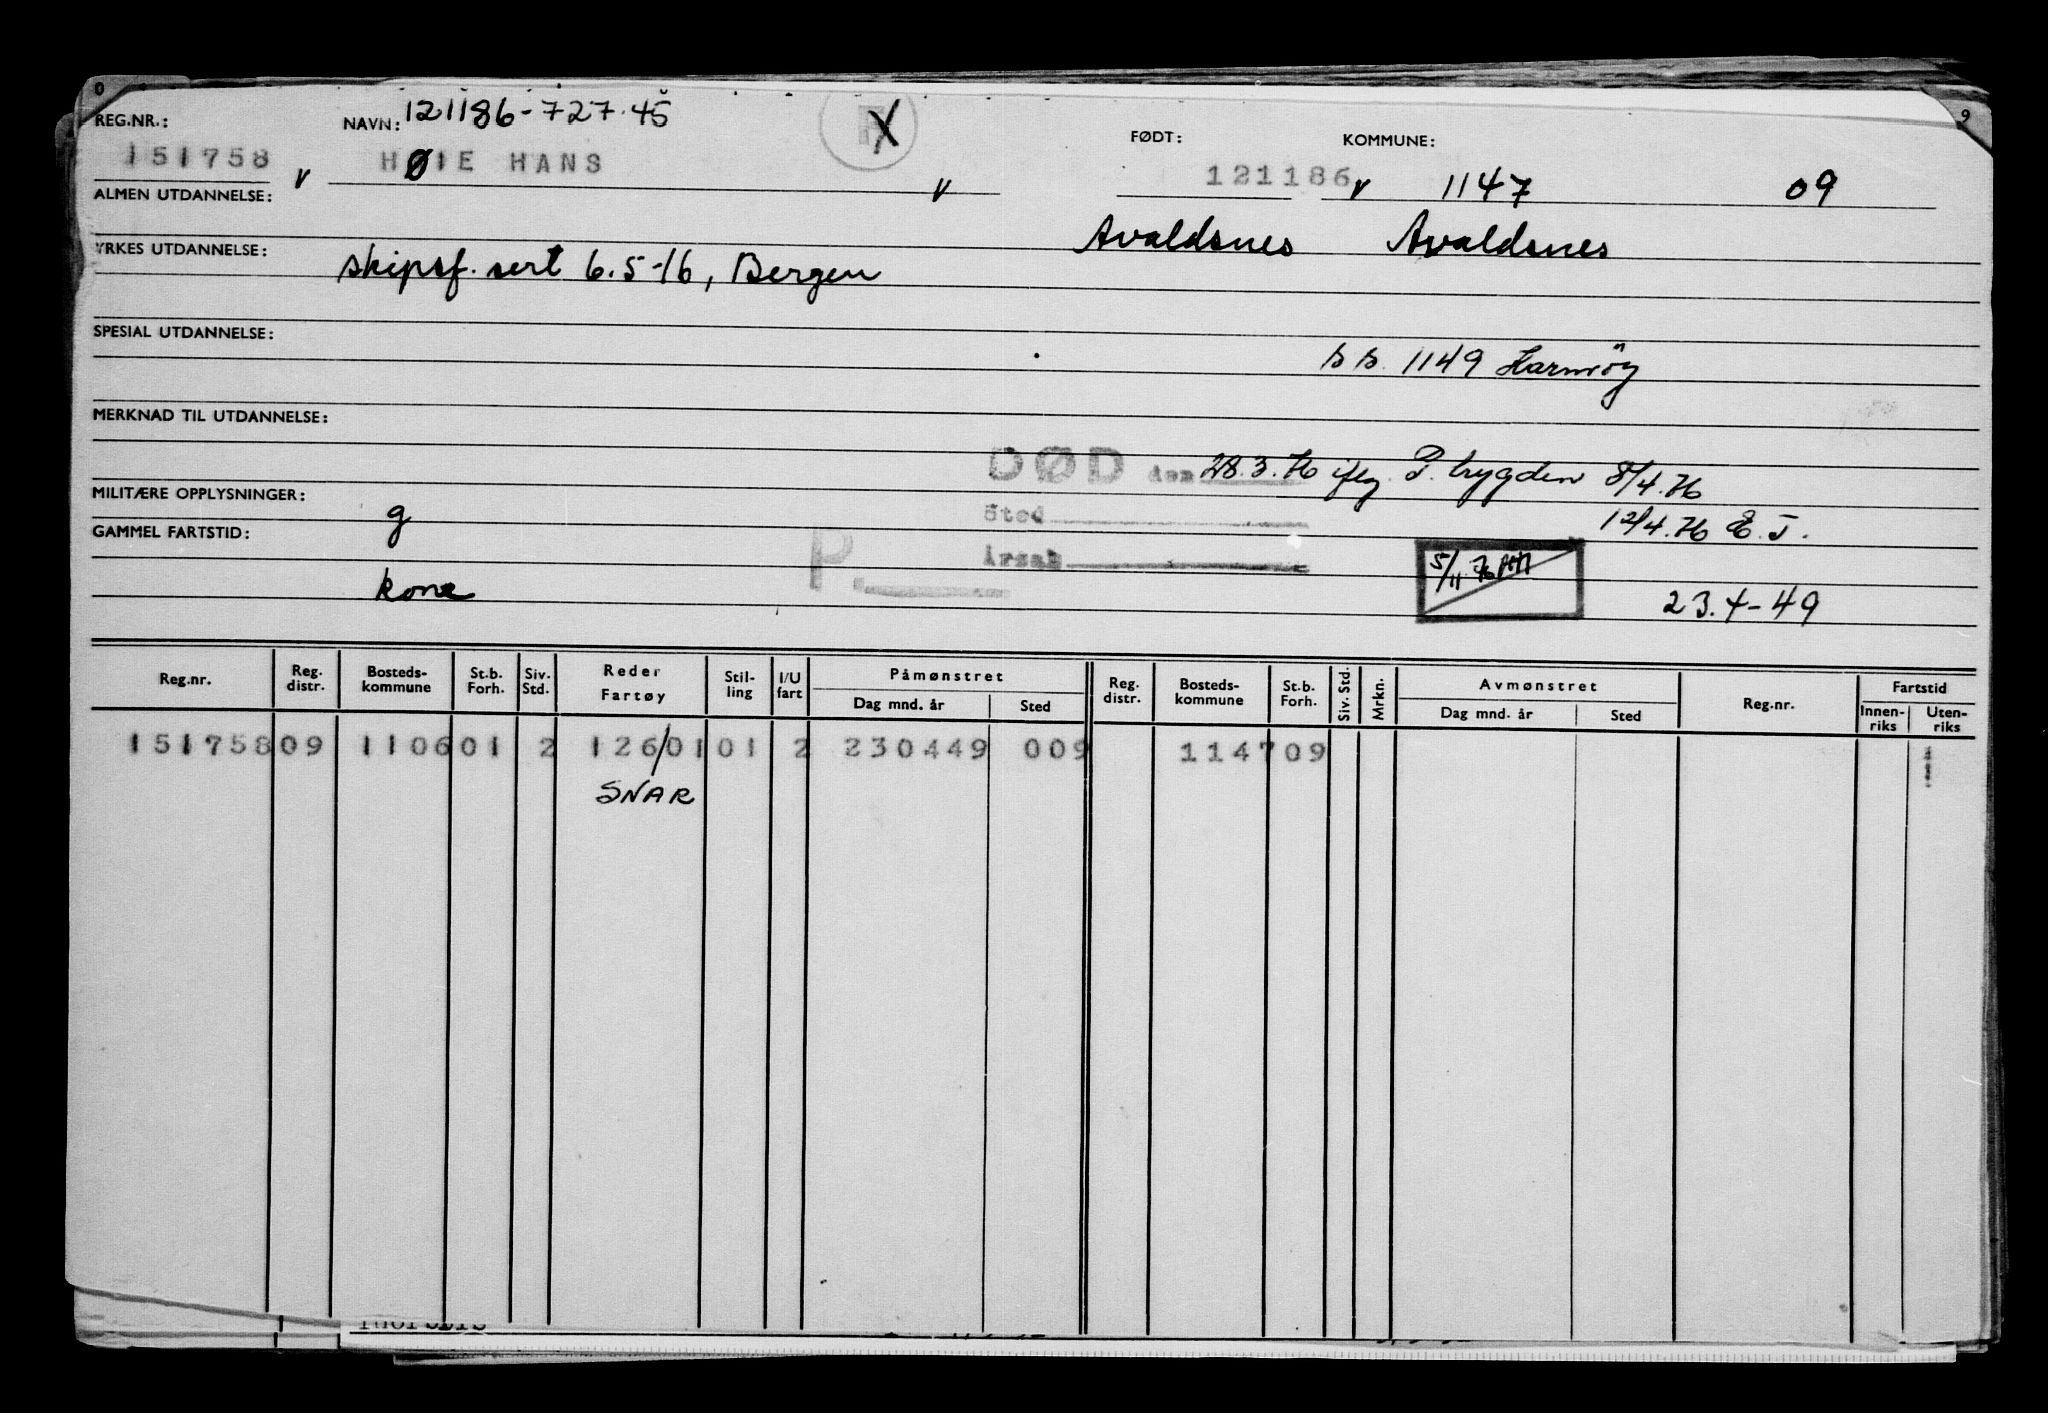 REG.NR.: NAVN: 121186-727.45 FØDT: KOMMUNE:
151758 v HØIE HANS v 121186 v 1147 09
ALMEN UTDANNELSE:
Avaldsnes Avaldsnes
YRKES UTDANNELSE: skipsf. sert 6.5-16, Bergen
SPESIAL UTDANNELSE:
s s. 1149 Karmöy
MERKNAD TIL UTDANNELSE:
DØD den 28.3.76 iflg. P. trygden 8/4.76
MILITÆRE OPPLYSNINGER: g Sted 12/4.76 E.J.
GAMMEL FARTSTID: P. Årsak 5/11 76
kone 23.4-49
Reg.nr. Reg. distr. Bosteds-kommune St.b. Forh. Siv. Std. Reder Fartøy Stil-ling I/U fart Påmønstret Dag mnd. år Sted Reg. distr. Bosteds-kommune St.b. Forh. Siv. Std. Mrkn. Avmønstret Dag mnd. år Sted Reg.nr. Fartstid Innen-riks Uten-riks
151758 09 1106 01 2 126/01 01 2 230449 009 1147 09
SNAR